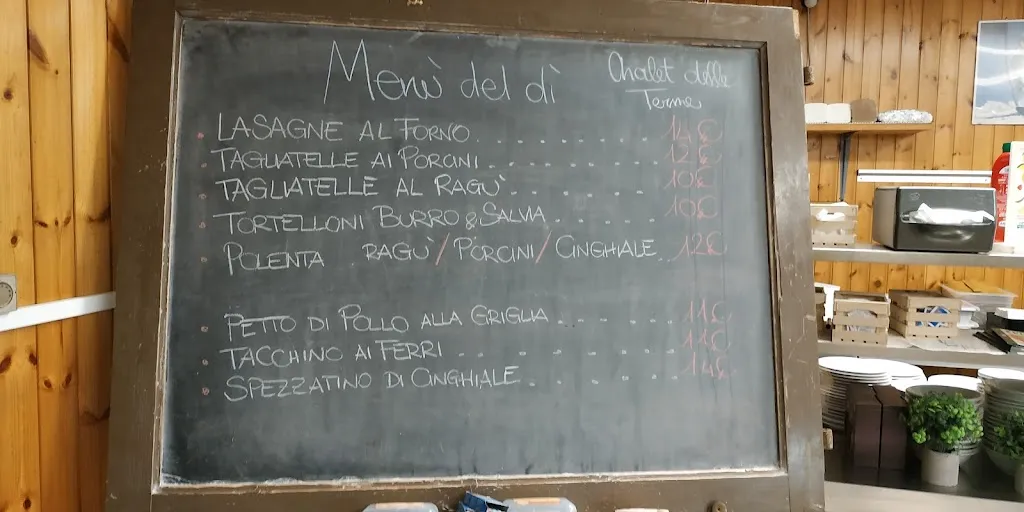 Menù del dì
Chalet delle
Terme
LASAGNE AL FORNO.......... 14€
TAGLIATELLE AI PORCINI.......... 12€
TAGLIATELLE AL RAGÙ.......... 10€
TORTELLONI BURRO & SALVIA....... 10€
POLENTA RAGÙ/PORCINI/CINGHIALE.. 12€
PETTO DI POLLO ALLA GRIGLIA....... 11€
TACCHINO AI FERRI.......... 11€
SPEZZATINO DI CINGHIALE....... 14€